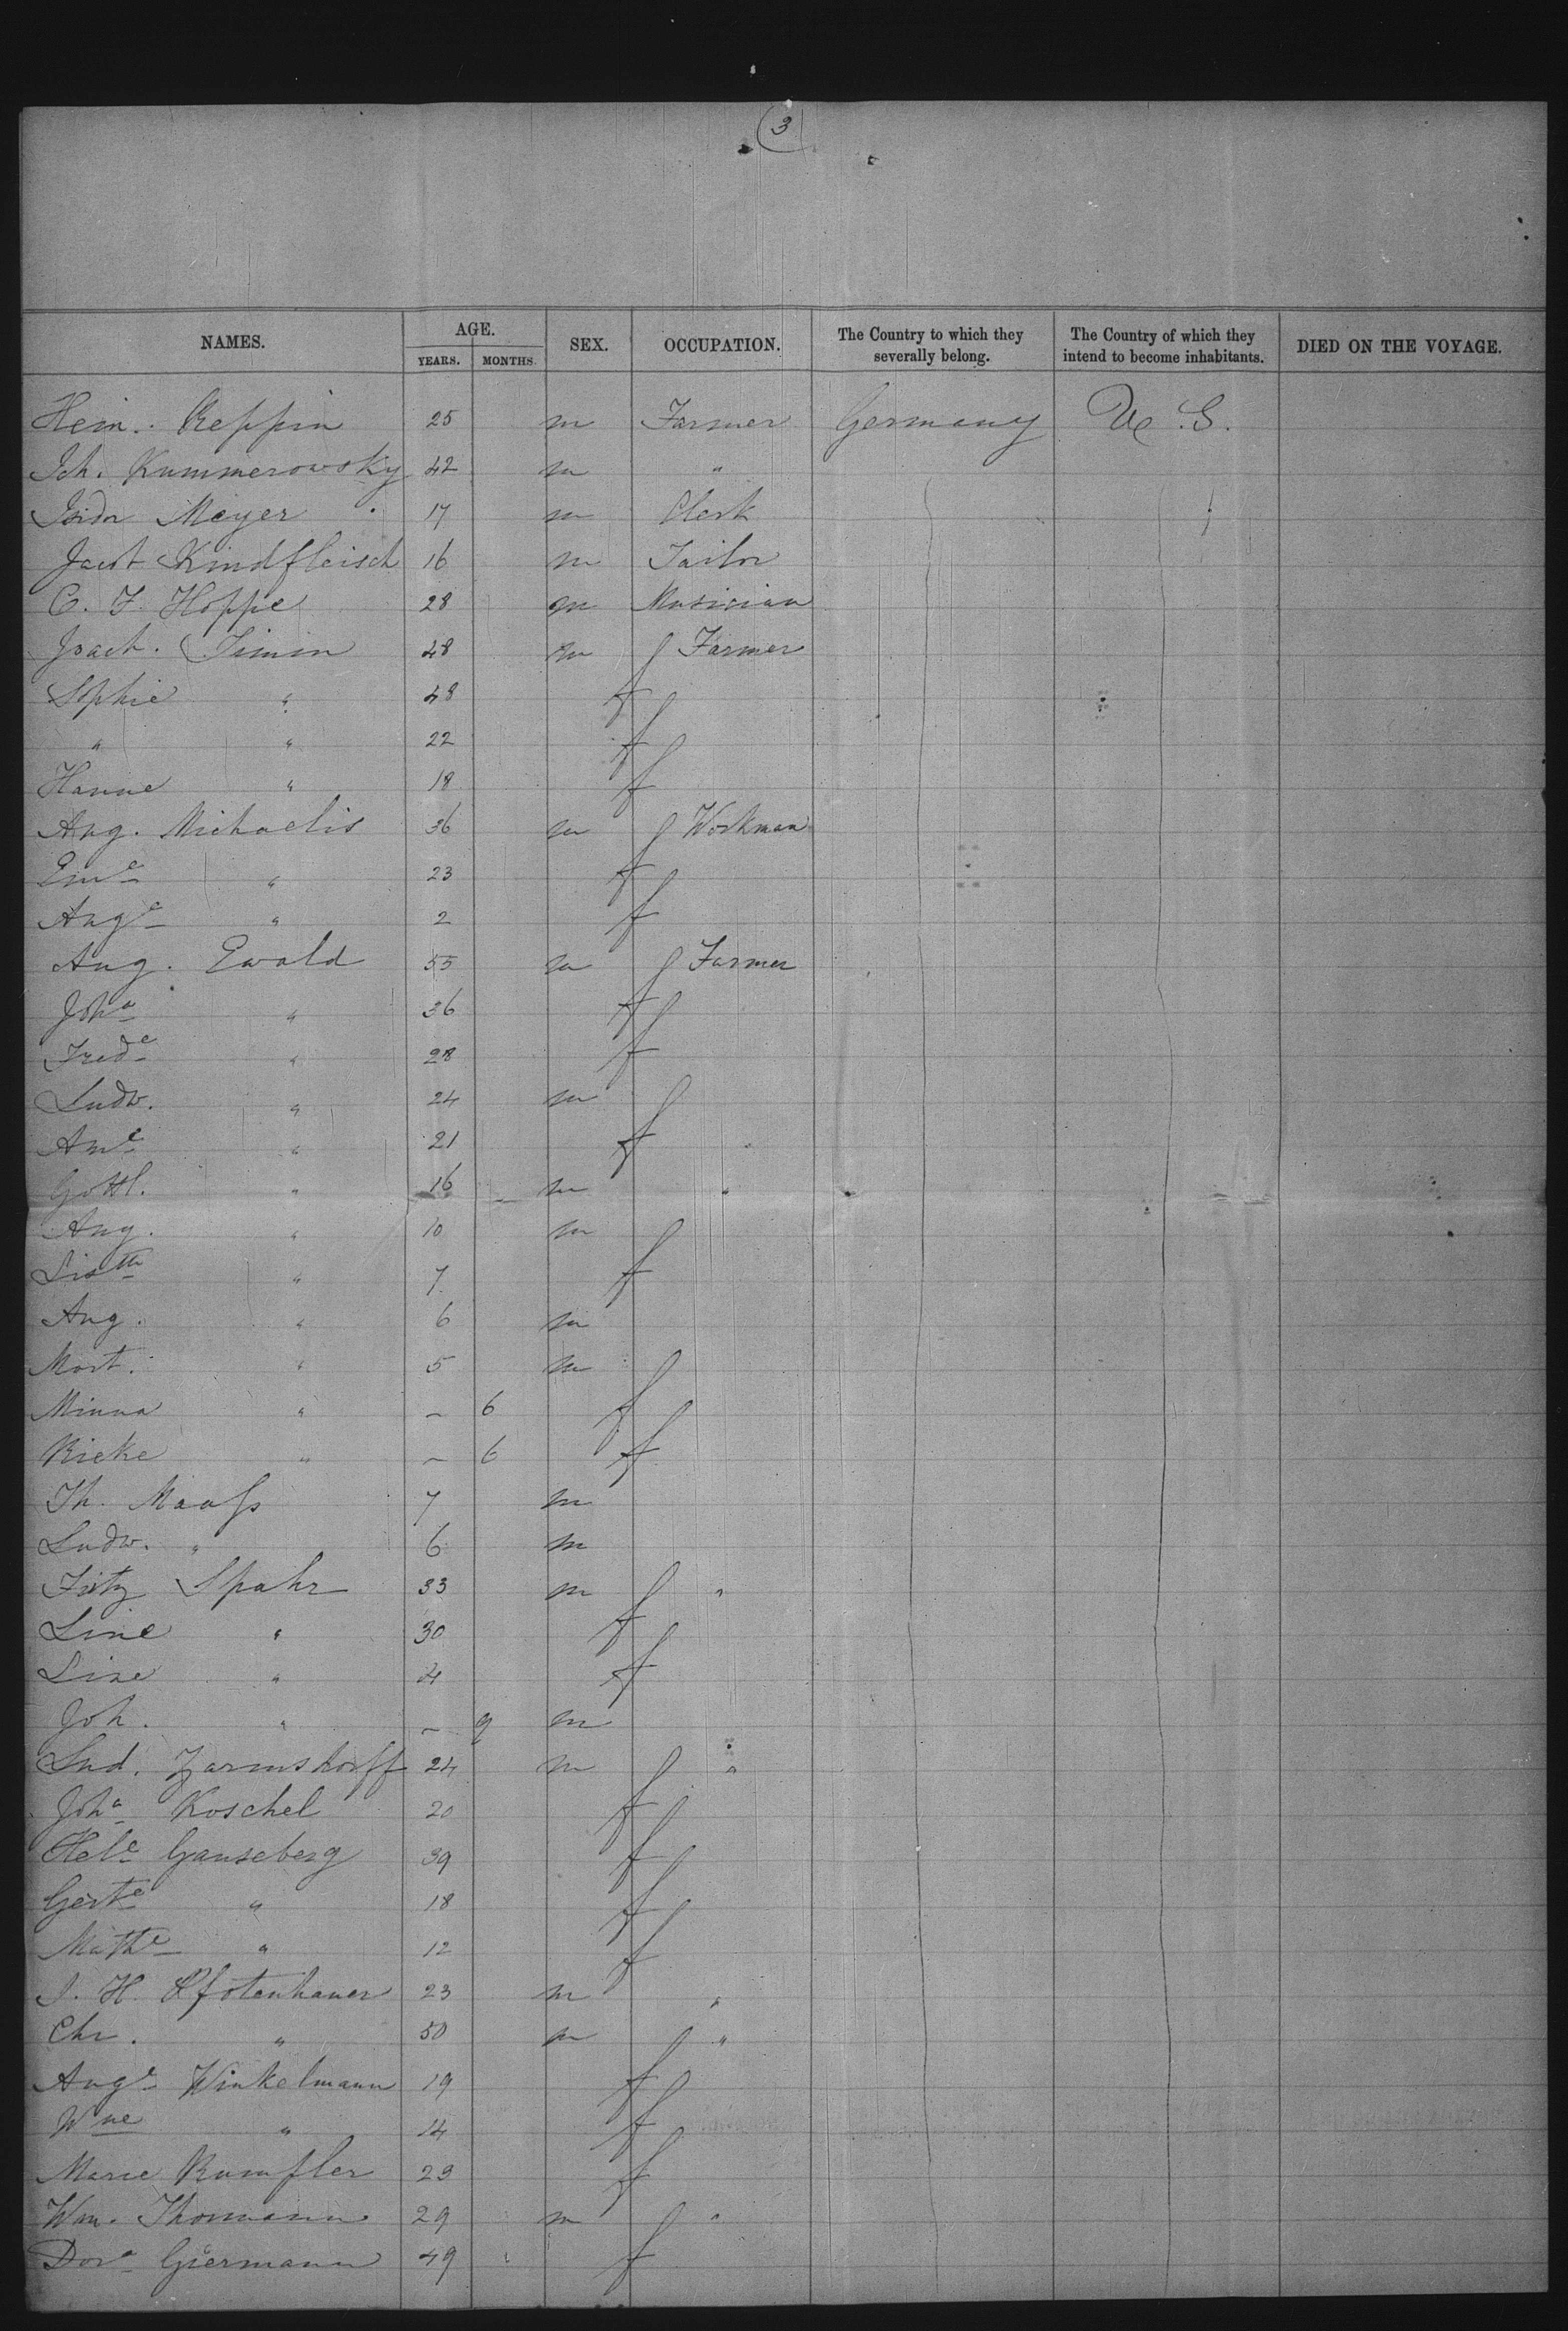 3
NAMES. AGE. SEX. OCCUPATION. The Country to which they severally belong. The Country of which they intend to become inhabitants. DIED ON THE VOYAGE.
YEARS. MONTHS.
Hein. Reppin 25 m Farmer Germany U.S.
Joh. Kummerowsky 42 m "
Isidor Meyer 17 m Clerk
Jacob Rindfleisch 16 m Tailor
C. F. Hoppe 28 m Musician
Joach. Timm 48 m Farmer
Sophie " 48 f
" " 22 f
Hanne " 18 f
Aug. Michaelis 36 m Workman
Em^e " 23 f
Aug^e " 2 f
Aug. Ewald 55 m Farmer
Joh^a " 36 f
Fred^e " 28 f
Ludw. " 24 m
Am^e " 21 f "
Gottl. " 16 m "
Aug. " 10 m
Lis^th " 7 f
Aug. " 6 m
Mart. " 5 m
Minna " – 6 f
Rieke " – 6 f
Th. Maaſs 7 m
Ludw. " 6 m
Fritz Spahr 33 m "
Line " 30 f
Line " 4 f
Joh. " – 9 m
Lud. Zarmstorff 24 m "
Joh^a Koschel 20 f
Hel^e Ganseberg 39 f
Gert^e " 18 f
Math^e " 12 f
J. H. Pfotenhauer 23 m "
Chr. " 50 m "
Aug^e Winkelmann 19 f
W^ne " 14 f
Marie 29 f
Wm. Thomann 29 m "
Dor^a Giermann 49 f